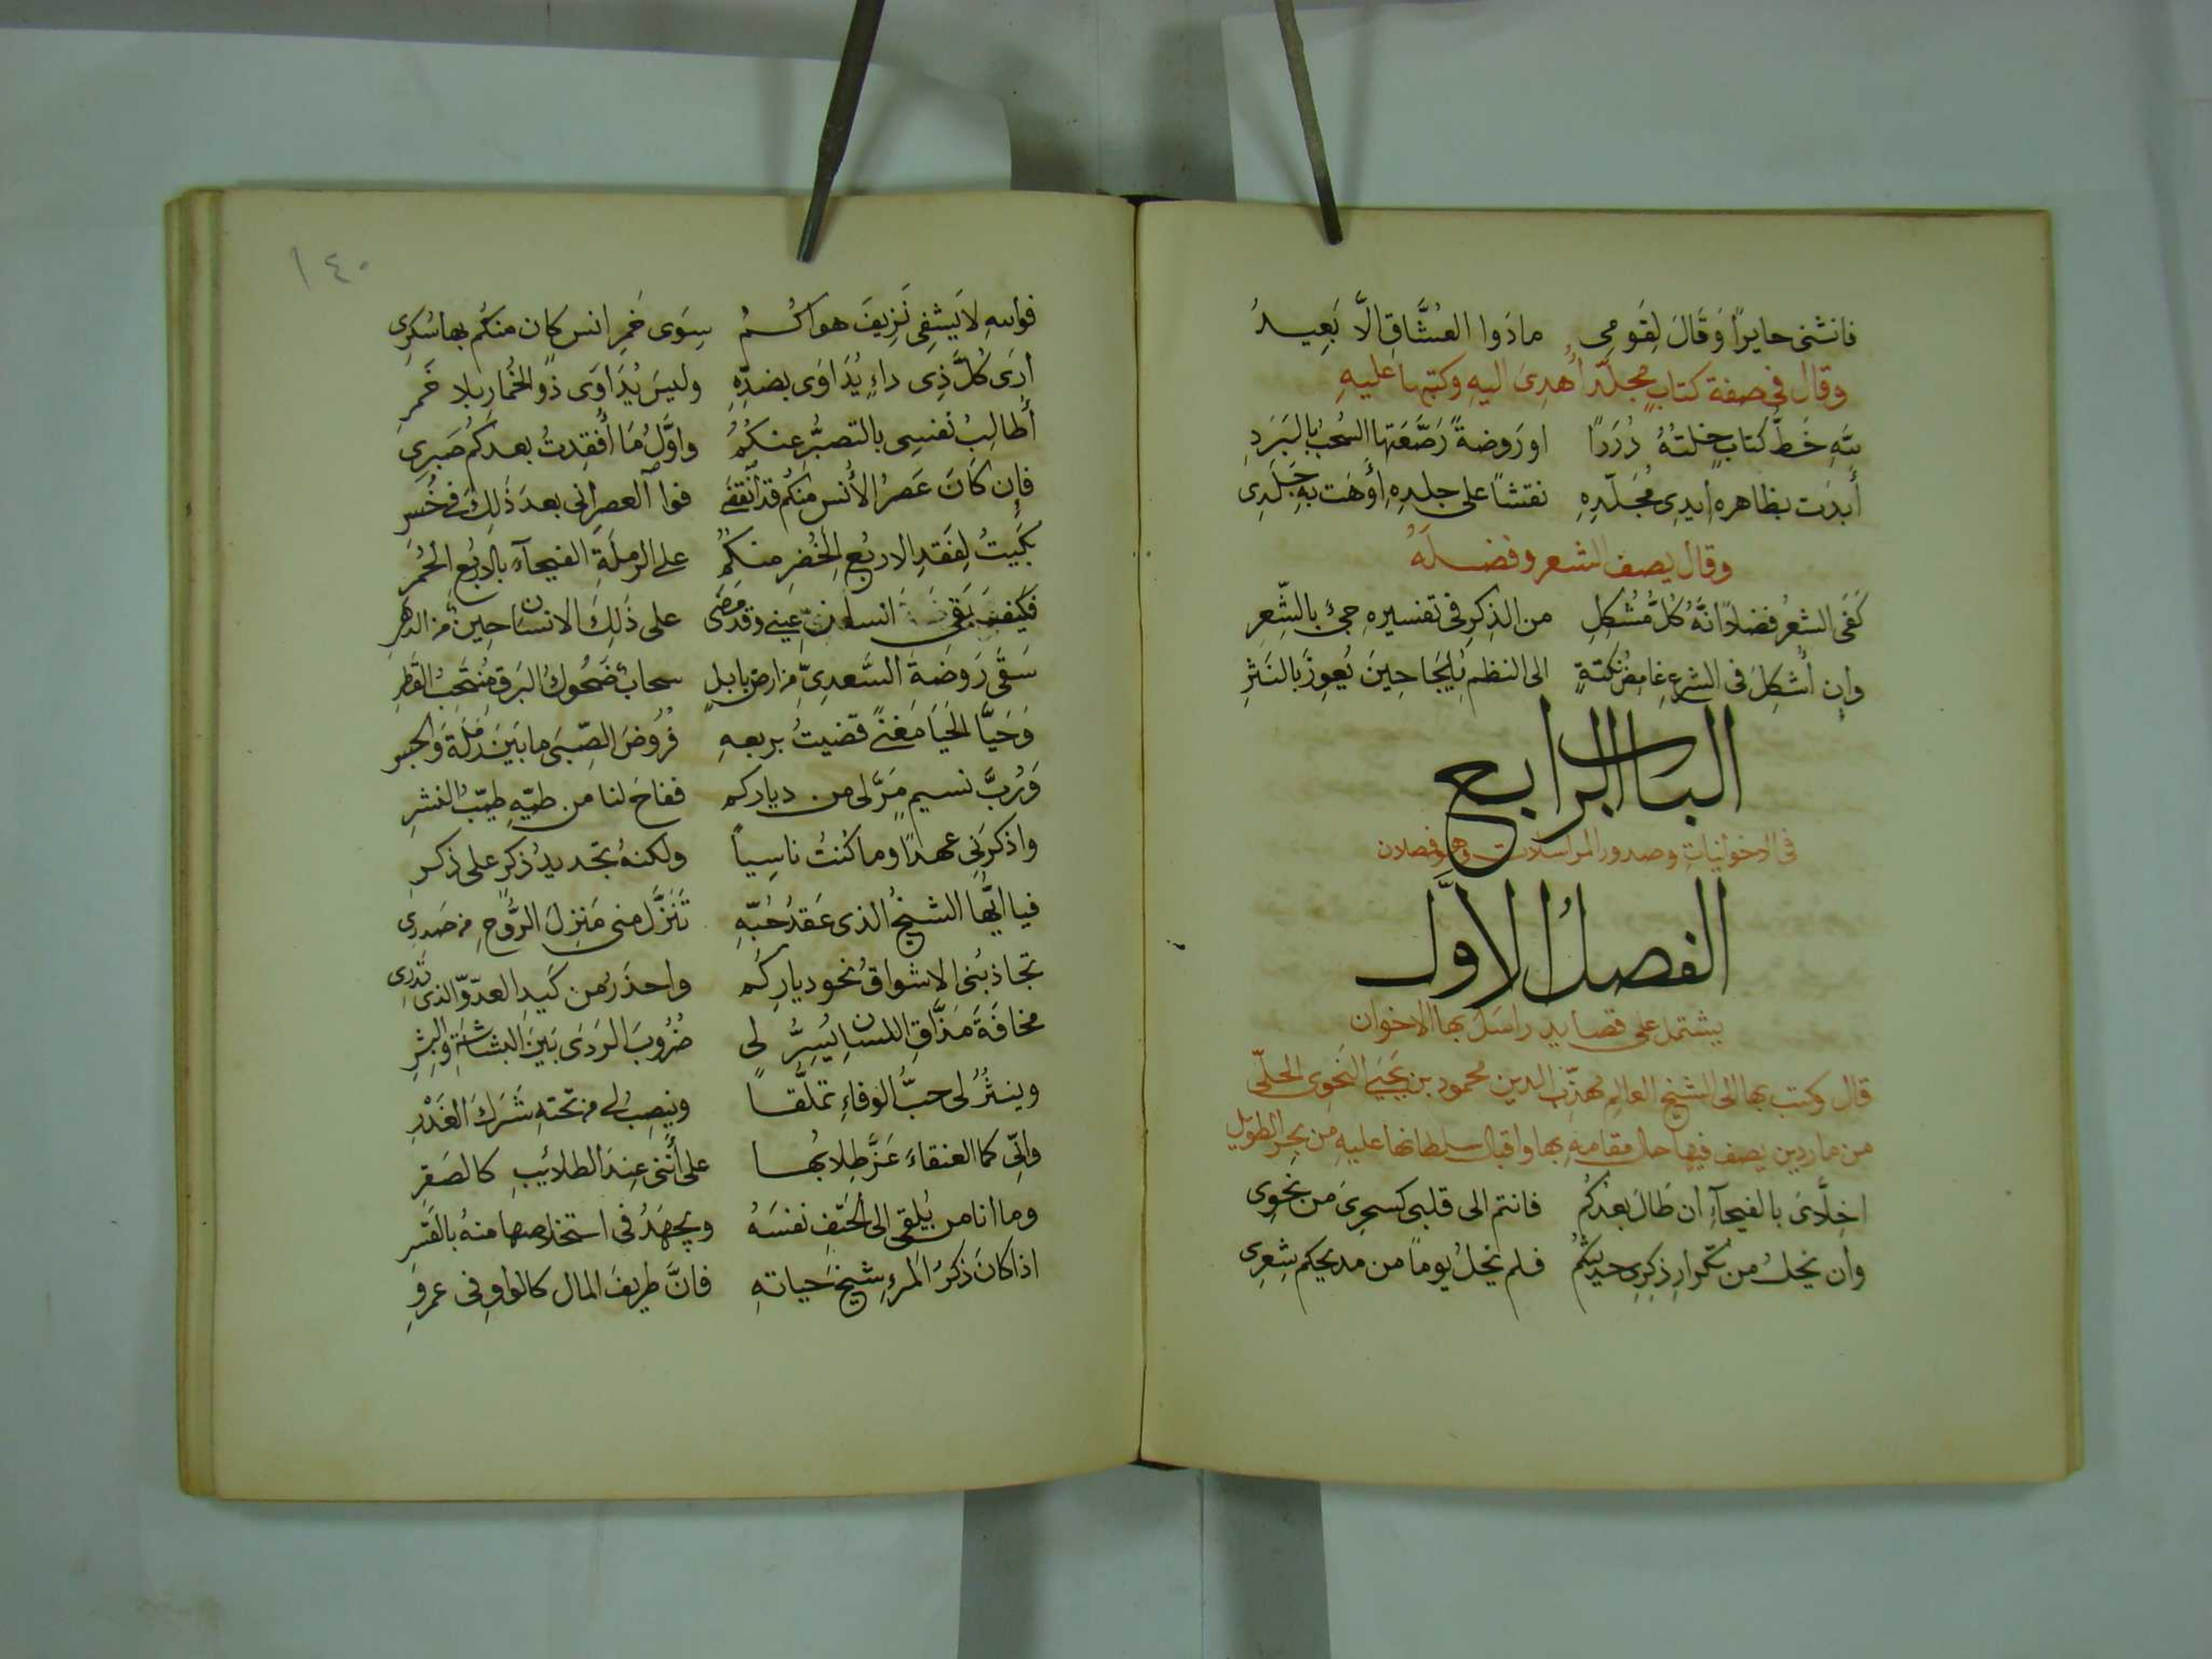 فانثنى حايرًا وَقَالَ لِقَومِى ماذوا العُشَّاقِ الَّا بَعِيدُ
وقال فى صفة كتابٍ مجلّد أُهدِىَ اليهِ وكتبها عليهِ
للهِ خَطُّ كتابٍ خِلتُهُ دُرَرًا او رَوضةً رَصَّعَتها السُحبُ بالبَرَدِ
أَبدَت بظاهرهِ ايدِى مُجَلّدِهِ نقشًا على جلدِهِ أوهَت بهِ جَلَدِى
وقال يصف الشعر وفضلَهُ
كَفَى الشعرُ فضلاً انَّهُ كُلُّ مُشكِلٍ من الذِكرِ فى تفسيرهِ جِئَ بالشِّعرِ
وإن أُشكِلَ فى الشرعِ غامِضُ نُكتةٍ الى النظم يُلجَا حِينَ يُعوِزُ بالنَثرِ
الباب الرابع
فى الاخوانيات وصدور المراسلات وهو فصلان
الفصلُ الاوَّل
يشتمل على قصايد راسَلَ بها الاخوان
قال وكتب بها الى الشيخ العالِم مهذّب الدين محمود بن يحيَى النَحوِى الحلّى
من ماردين يصف فيها حال مقامهِ بها واقبال سلطانها عليهِ من بحر الطويل
اخِلَّاىَ بالفيحآءِ ان طَالَ بعدُكُم فانتم الى قلبى كسحرِىَ من نحرِى
وان يخلُ من تكرارِ ذِكرِى حديثُكُم فلم يخلُ يومًا من مديحكم شِعرِى
١٤٠
فواللهِ لا يَشفِى نَزِيفَ هواكُمُ سِوَى خَمرِ انسٍ كان منكُم بها سُكرِى
أرَى كُلَّ ذِى داءٍ يُدَاوَى بضدِّهِ وليسَ يُدَاوَى ذُو الخُمارِ بلا خَمرِ
أُطالِبُ نفسِى بالتصبُّرِ عنكُمُ واوَّلُ مَا أُفقِدتُ بعدكُم صَبرِى
فإن كَانَ عَصرُ الأُنسِ منكُم قد انقَضَى فوا العصرِ انى بعدَ ذَلِكَ فى خُسرِ
بَكَيتُ لِفَقدِ الاربُعِ الخُضرِ منكُمُ على الرملَةِ الفيحآءِ بالاربُعِ الحُمرِ
فكيفَ بَقِى انسانُ عينى وقد مضَى على ذَلِكَ الانسانِ حِينٌ من الدهرِ
سَقَى رَوضَةَ السَّعدِىِّ من ارض بابلٍ سحابٌ ضَحُوكُ البَرقِ مُنتَحِبُ القَطرِ
وَحَيَّا الحَيَا مَغنىً قضيتُ بربعهِ فُرُوضَ الصِّبَى ما بَينَ رَملَةَ والجسرِ
وَرُبَّ نسيمٍ مَرَّ لى من دياركم ففاحَ لنا من طيّهِ طيّبُ النشرِ
واذكرَنى عهدًا وما كُنتُ ناسِياً ولكنهُ تجديدُ ذكرٍ على ذكرِ
فيا ايُّها الشيخُ الذى عَقدُ حُبّهِ تَنَزَّلَ منى مَنزِلَ الرُّوحِ من صَدرِى
تجاذبُنى الاشواقُ نحو ديارِكُم واحذَرُ من كَيدِ العدوِّ الذى تَدرِى
مخافَةَ مَذَّاقِ اللسانِ يُسِرُّ لى ضُرُوبَ الرَدَى بَينَ البشاشَةِ والبِشرِ
وينثُرُ لى حبَّ الوفاءِ تملُّقاً وينصِبُ لى من تحتهِ شَرَكَ الغَدرِ
وانّى كما العنقاءَ عَزَّ طِلابُها على أنَّنى عِندَ الطلائبِ كالصَقرِ
وما انا من يُلقِى الى الحَتفِ نفسَهُ ويجهَدُ فى استخلاصها منهُ بالقَسرِ
اذا كانَ ذكرُ المَرءِ شيخَ حياتهِ فانَّ طريفَ المال كالواوِ فى عمرِو